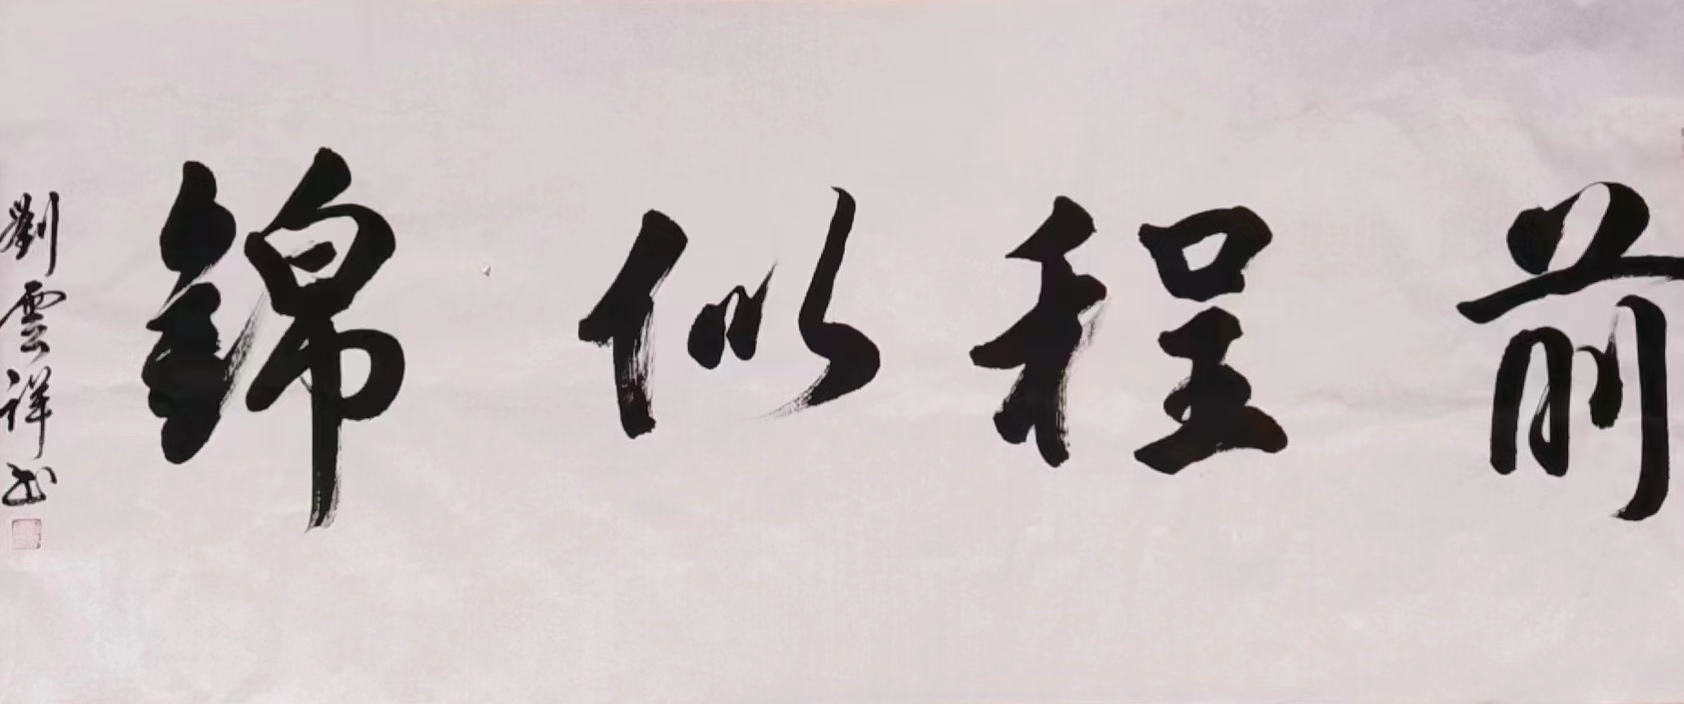 前程似錦
劉雲祥书